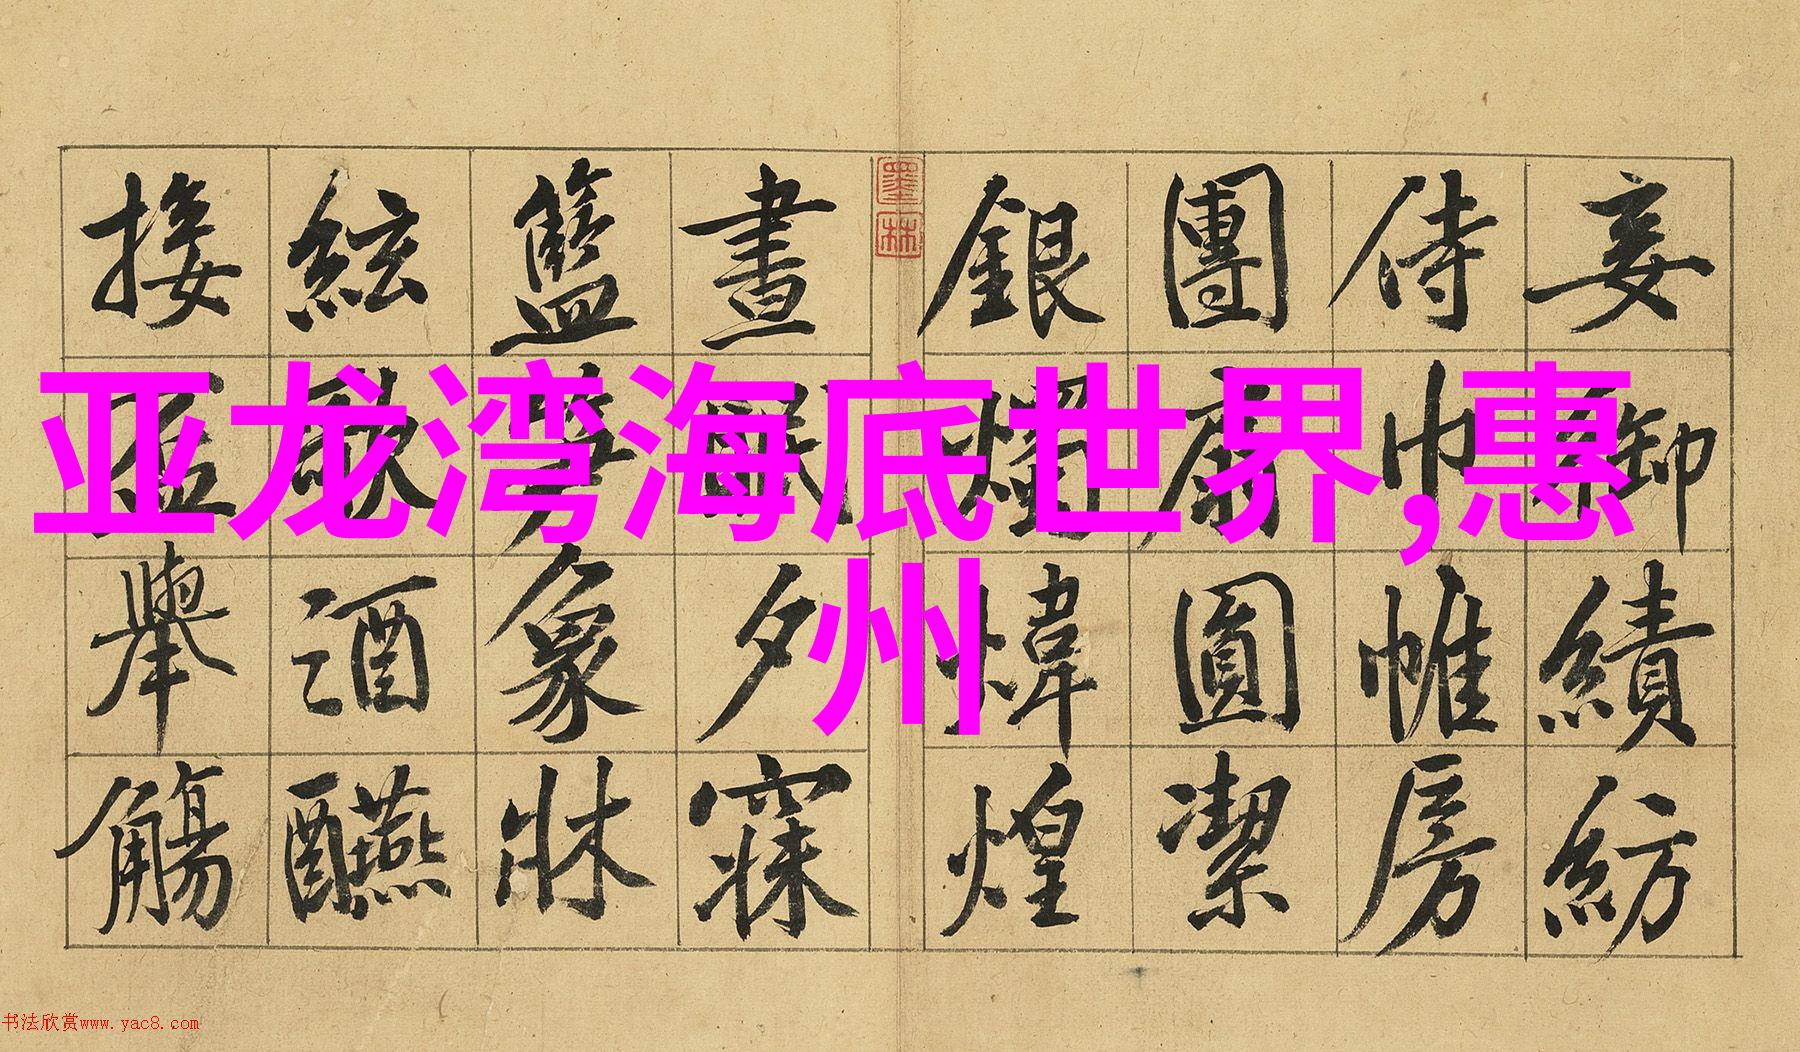 亚龙湾海底世界,惠
州
妾御績紡
侍巾帷房
團扇圓潔
銀燭煒煌
墨林
晝眠夕寐
籃笋象牀
絃歌酒醼
接盃舉觴
书法欣赏www.yac8.com